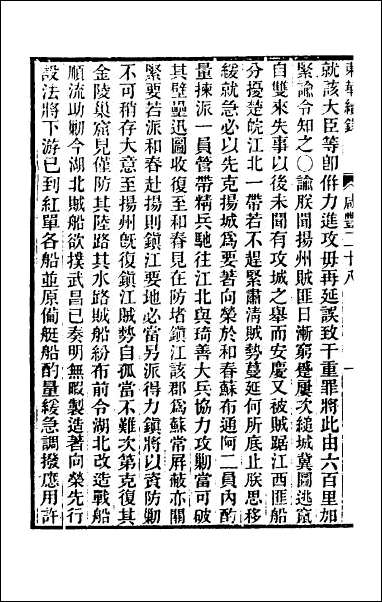 東華續錄　咸豐二十八　一
就該大臣等卽倂力進攻毋再延誤致干重罪將此由六百里加
緊諭令知之〇諭朕聞揚州賊匪日漸窮蹙屢次縋城冀圖逃竄
自雙來失事以後未聞有攻城之舉而安慶又被賊踞江西匪船
分擾楚皖江北一帶若不趕緊肅淸賊勢蔓延何所底止朕思移
緩就急必以先克揚城爲要著向榮於和春蘇布通阿二員內酌
量揀派一員管帶精兵馳往江北與琦善大兵協力攻勦當可破
其壁壘迅圖收復至和春見在防堵鎭江該郡爲蘇常屛蔽亦關
緊要若派和春赴揚則鎭江要地必當另派得力鎭將以資防勦
不可稍存大意至揚州旣復鎭江賊勢自孤當不難次第克復其
金陵巢窟見僅防其陸路其水路賊船紛布前令湖北改造戰船
順流助勦今湖北賊船欲撲武昌已奏明無暇製造著向榮先行
設法將下游已到紅單各船並原僱艇船酌量緩急調撥應用許